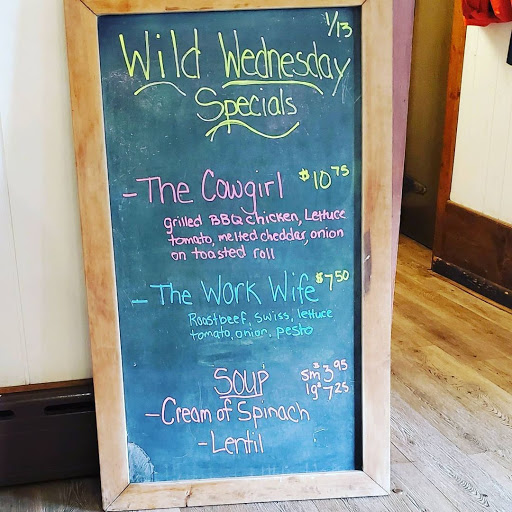 1/13
Wild Wednesday
Specials
- The Cowgirl $10.75
grilled BBQ chicken, Lettuce
tomato, melted cheddar, onion
on toasted roll
- The Work Wife $7.50
Roastbeef, swiss, lettuce
tomato, onion, pesto
Soup sm $3.95
lg $7.25
- Cream of Spinach
- Lentil